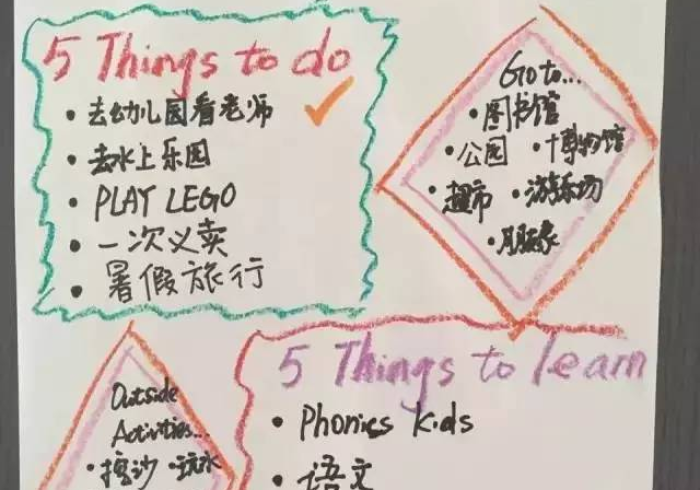 5 Things to do
• 去幼儿园看老师
• 去水上乐园
• PLAY LEGO
• 一次义卖
• 暑假旅行
Go to...
• 图书馆
• 公园 • 博物馆
• 超市 • 游乐场
5 Things to learn
• Phonics Kids
• 语文
Outside
Activities...
• 挖沙 • 玩水